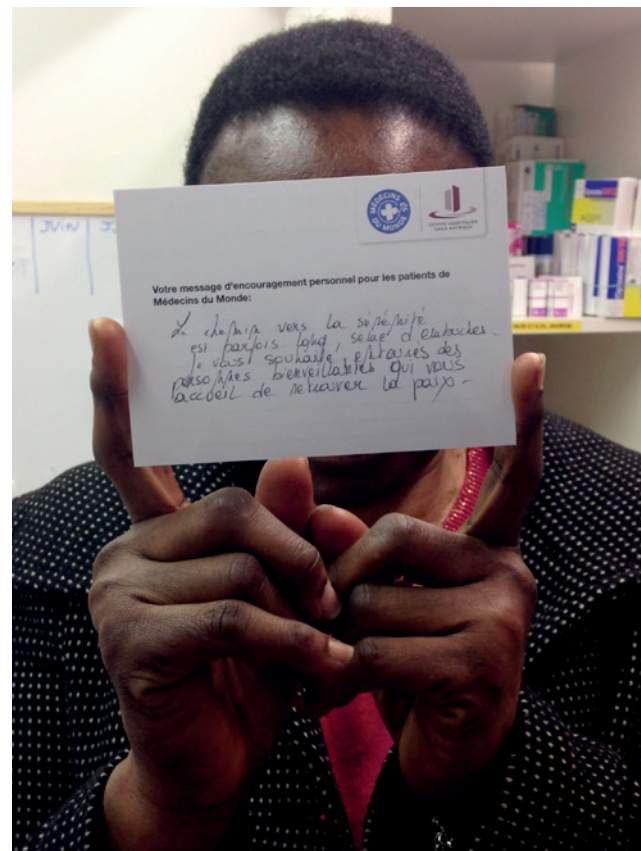 MÉDECINS DU MONDE
CENTRE HOSPITALIER
Votre message d'encouragement personnel pour les patients de
Médecins du Monde:
Le chemin vers la sérénité
est parfois long, semé d'embûches.
Je vous souhaite, entourés des
personnes bienveillantes qui vous
accueil de retrouver la paix -
JUIN
ASCULAIRE